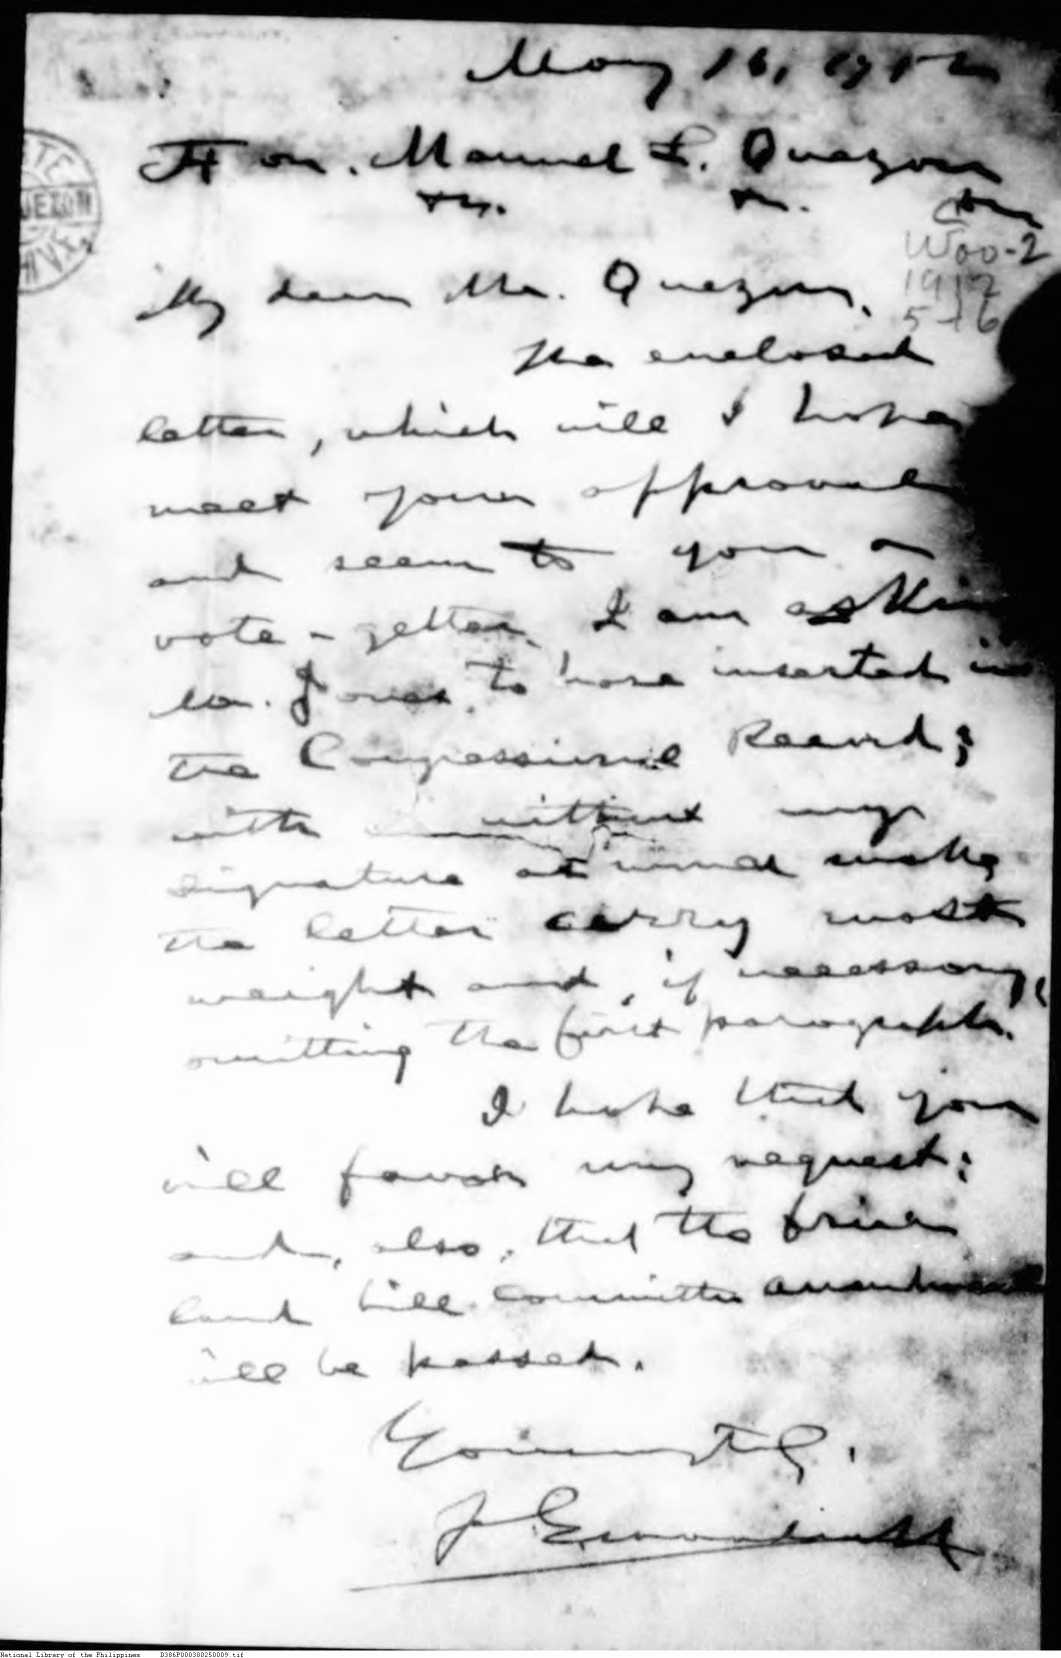 May 16, 1912
Hon. Manuel L. Quezon
Woo-2
1912
5-16
My dear Mr. Quezon,
The enclosed
letter, which will I hope
meet your approval
and seem to you a
vote-getter, I am asking
Mr. Jones to have inserted in
the Congressional Record;
with or without my
signature as would make
the letter carry most
weight and, if necessary,
omitting the first paragraph.
I hope that you
will favor my request;
and, also, that the friar
land bill committee amendment
will be passed.
Yours truly,
National Library of the Philippines D386P000380250009.tif